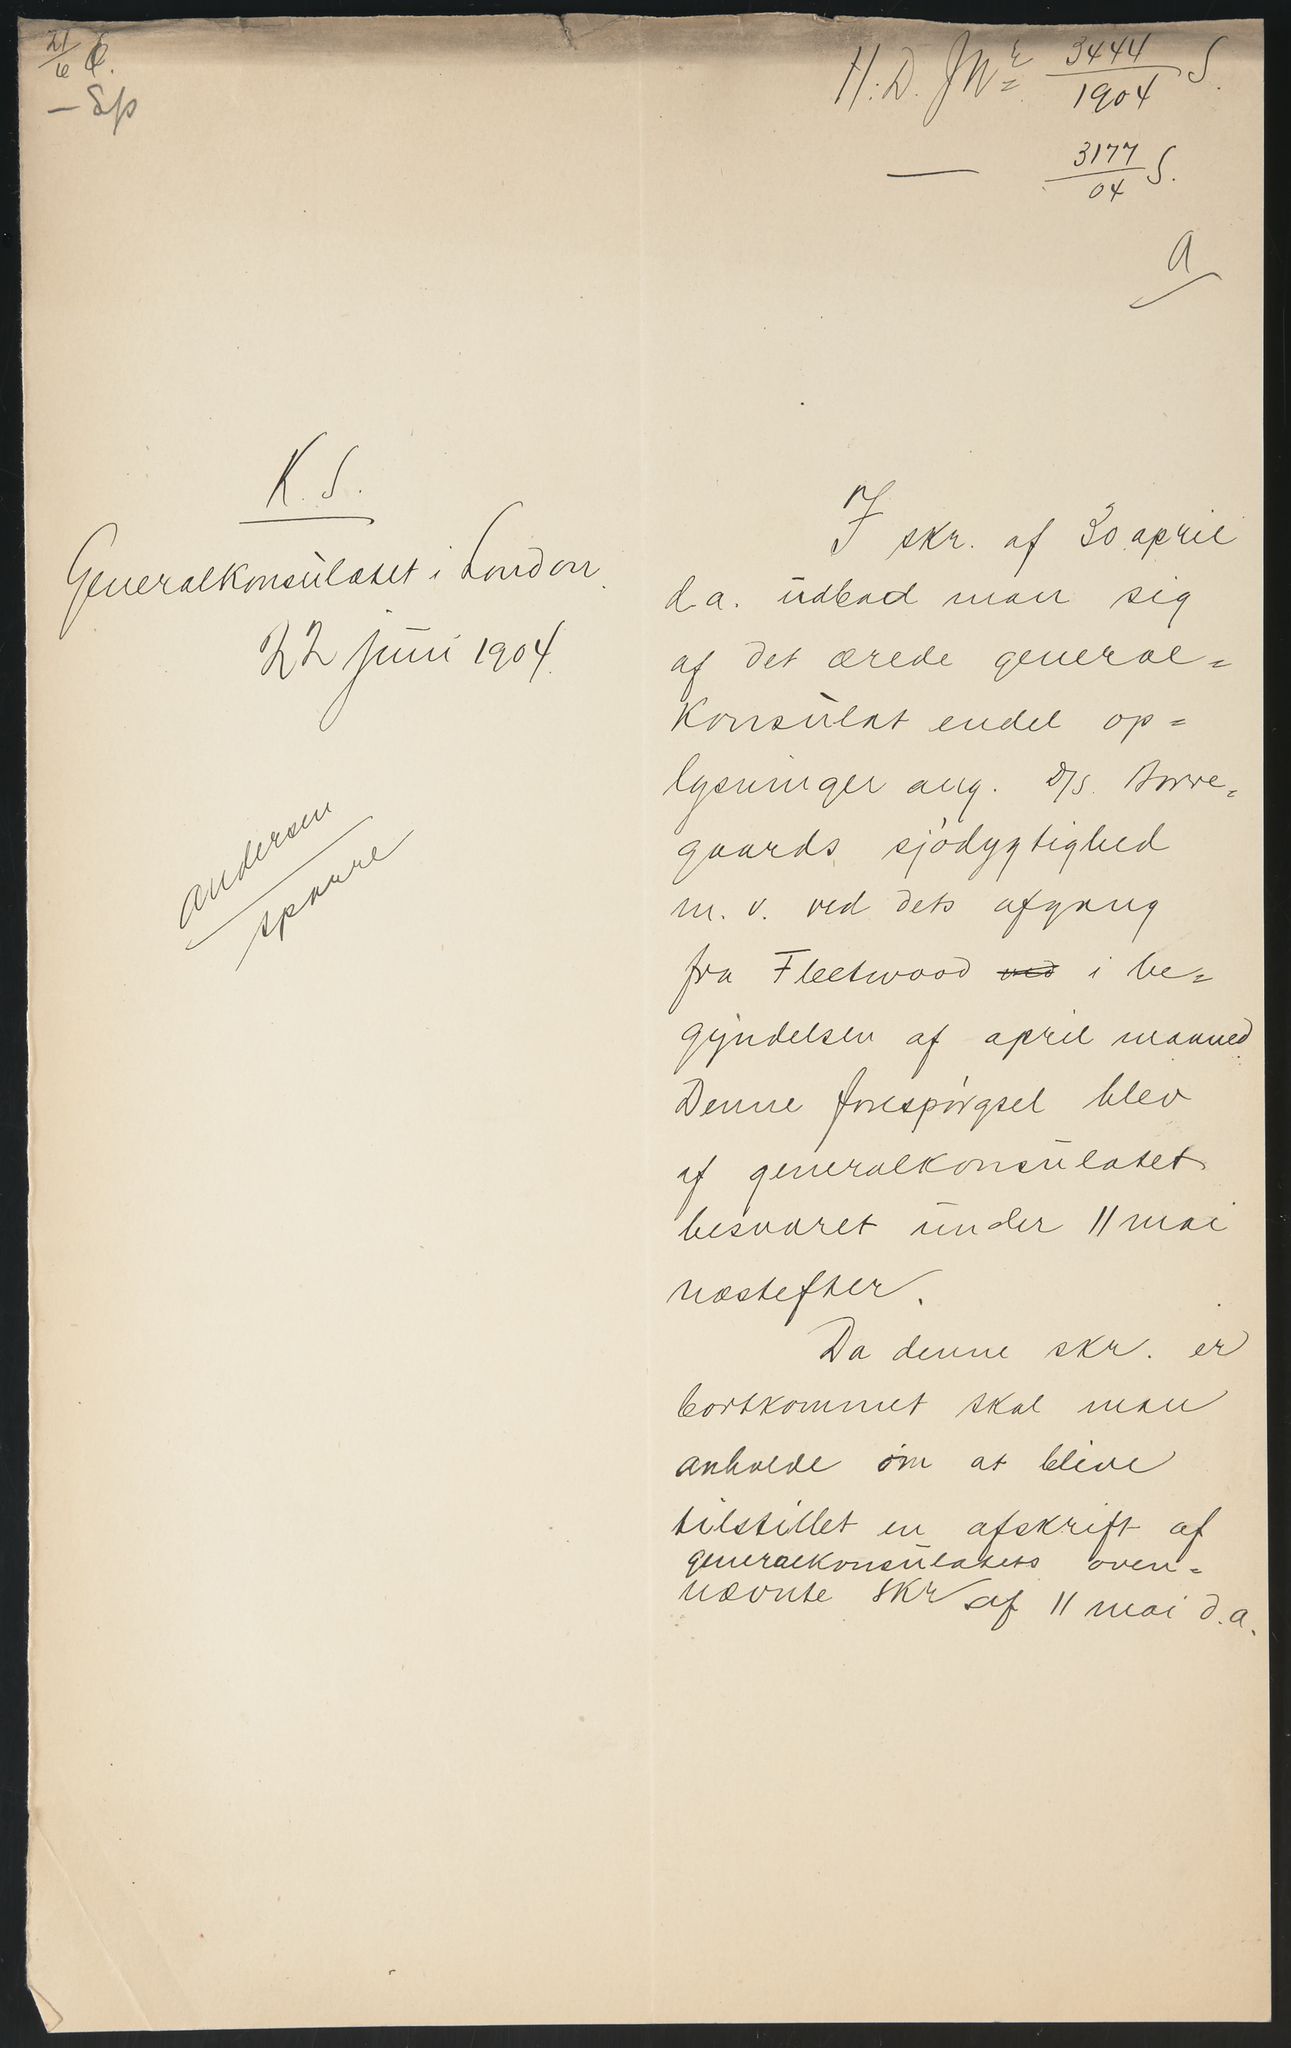 21/6 C.
— Sp
H. D. J Nr 3444/1904 S.
— 3177/04 S.
a
K. S.
Generalkonsulatet i London.
22 juni 1904.
Andersen
Sparre
I skr. af 30 april
d. a. udbad man sig
af det ærede general=
konsulat endel op=
lysninger ang. D/S. Norre=
gaards sjödygtighed
m. v. ved dets afgang
fra Fleetwood ved i be=
gyndelsen af april maaned.
Denne forespørgsel blev
af generalkonsulatet
besvaret under 11 mai
næstefter.
Da denne skr. er
bortkommet skal man
anholde om at blive
tilstillet en afskrift af
generalkonsulatets oven=
nævnte skr af 11 mai d. a.